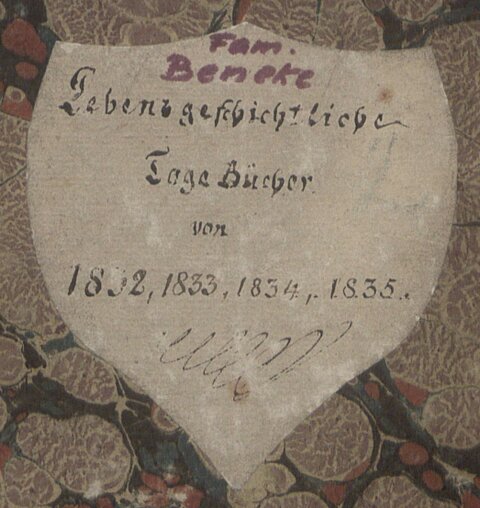 Fam.
Beneke
Lebensgeschichtliche
Tage Bücher
von
1832, 1833, 1834, 1835.